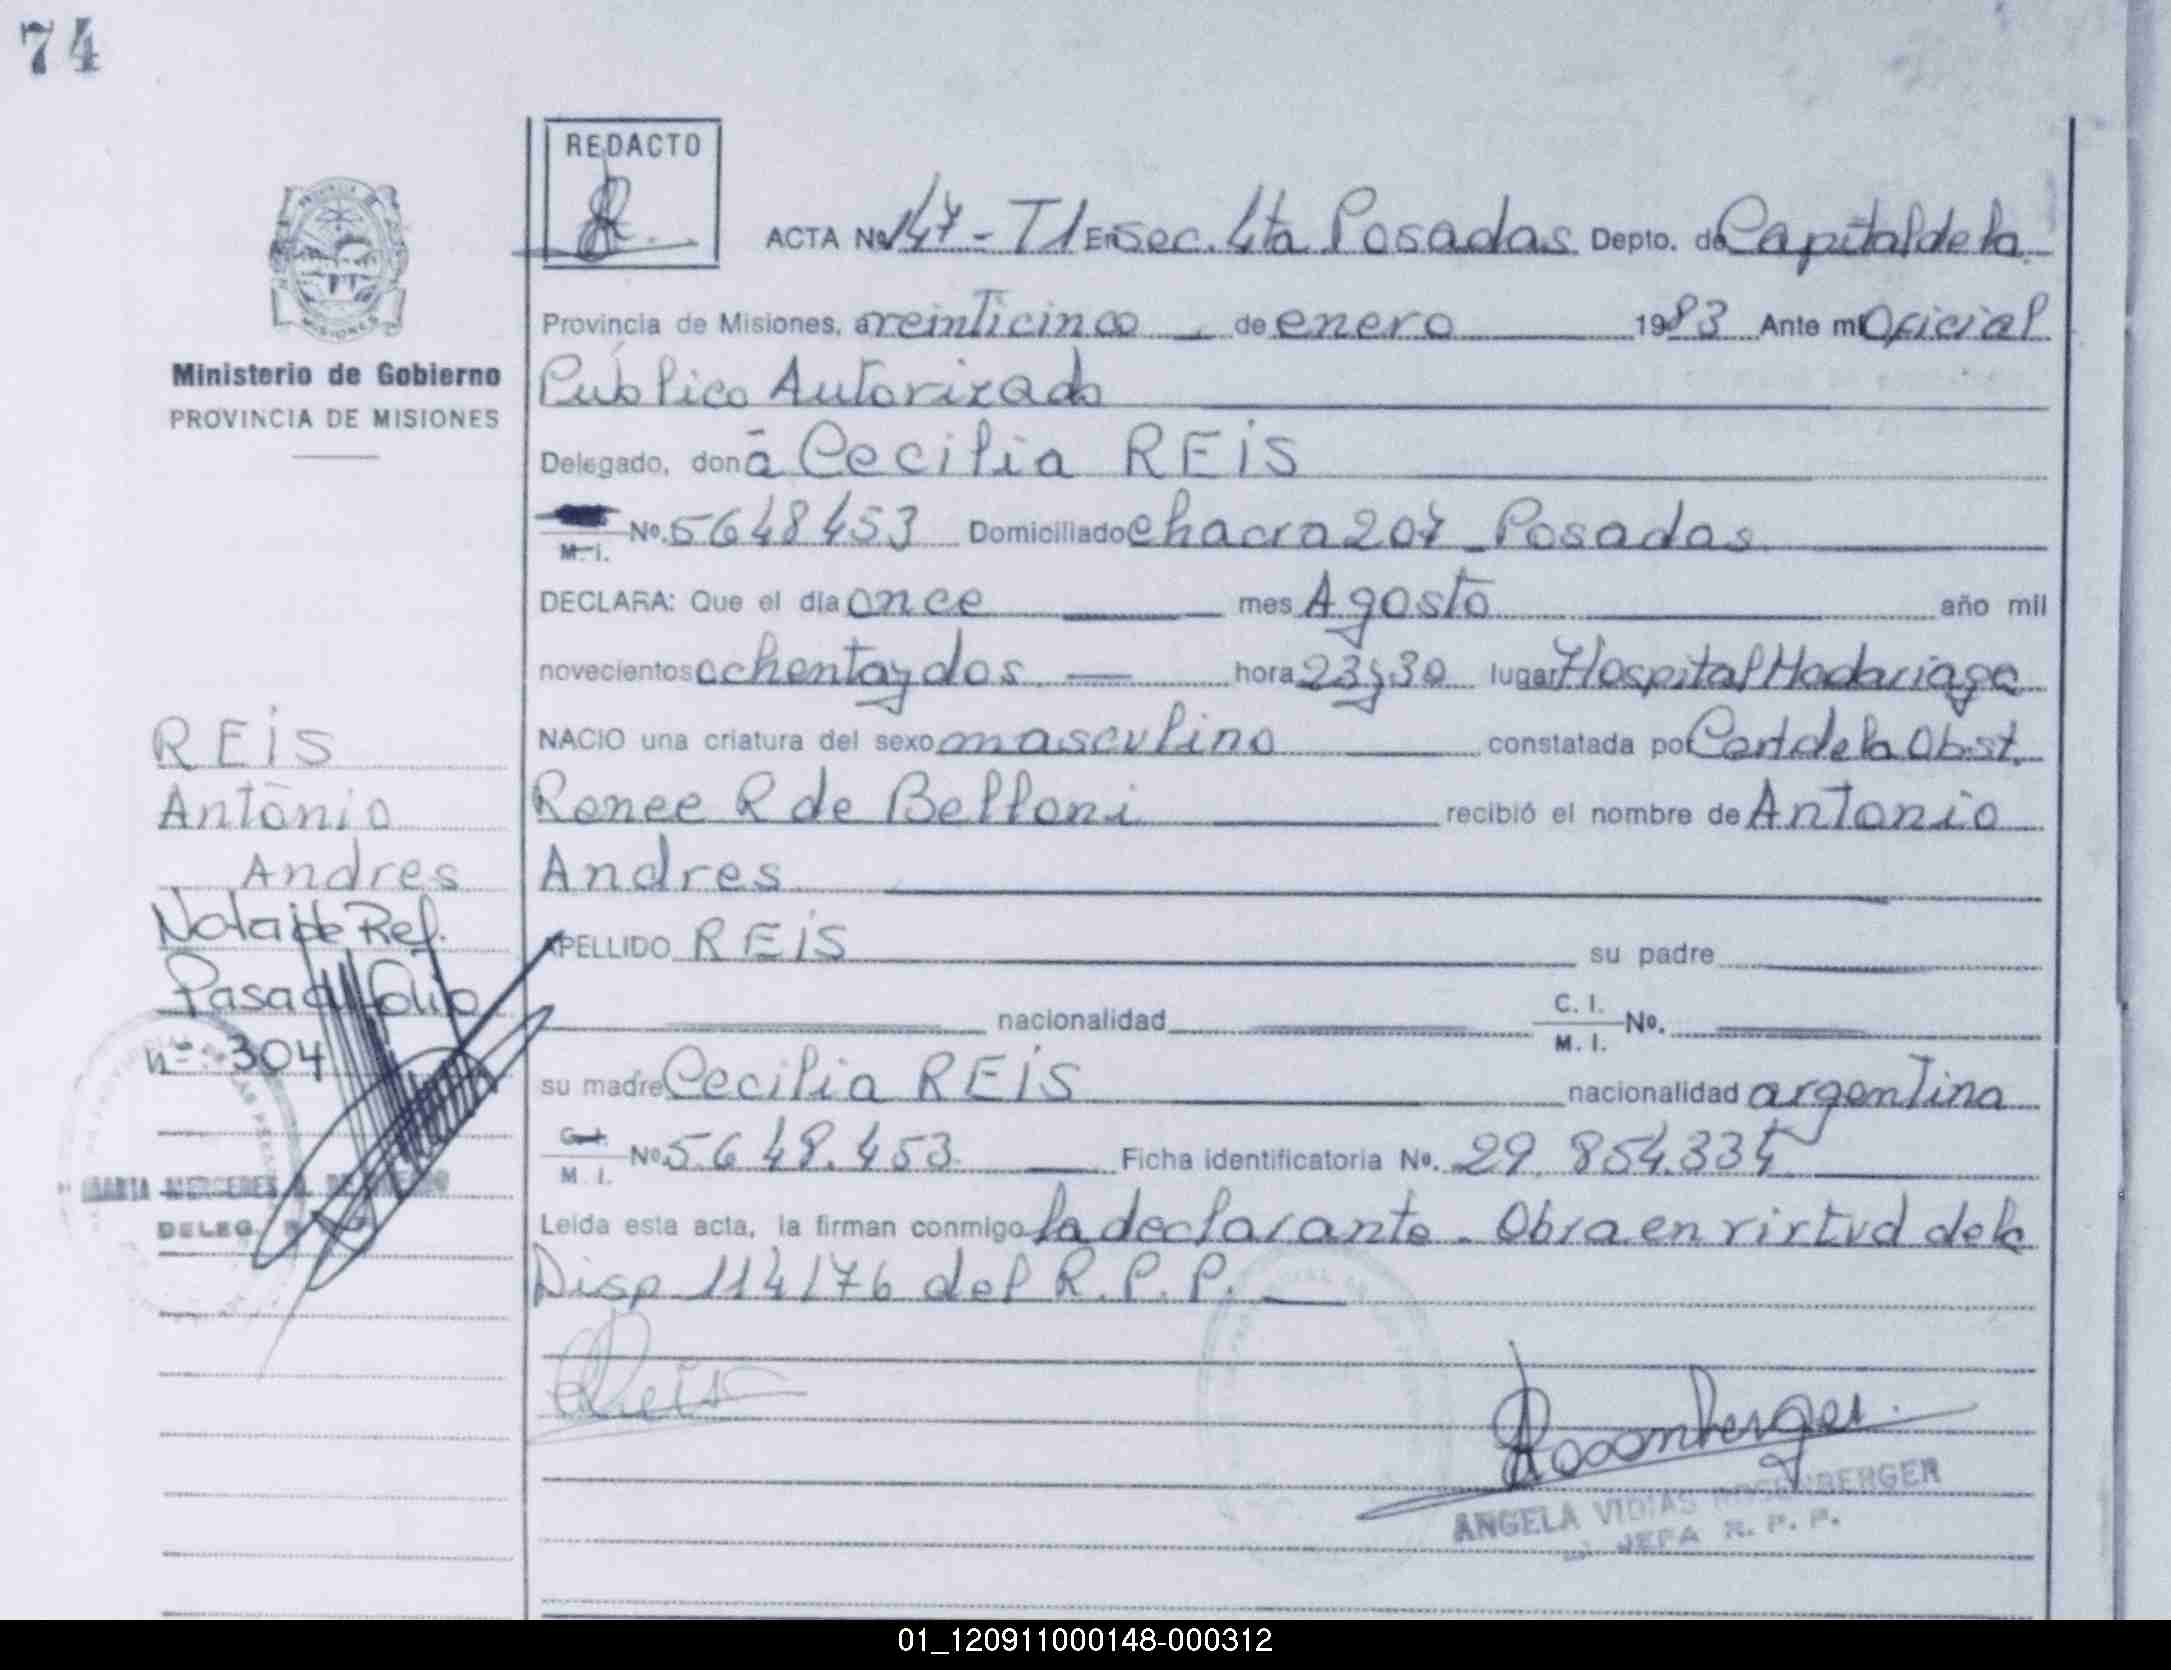 74
REDACTO
ACTA No. 147 - T1 En sec. 4ta Posadas Depto. de Capital de la
Provincia de Misiones, a veinticinco de enero 1983 Ante mi Oficial
Público Autorizado
Delegado, don ã Cecilia REIS
No. 5648453 Domiciliado chacra 207 Posadas
M. I.
DECLARA: Que el día once mes Agosto año mil
novecientos ochenta y dos hora 23,30 lugar Hospital Madariaga
NACIO una criatura del sexo masculino constatada por Cert de la Obst.
Renee R de Belloni recibió el nombre de Antonio
Andres
APELLIDO REIS su padre
nacionalidad C. I. No.
M. I.
su madre Cecilia REIS nacionalidad argentina
C. I. No. 5.648.453 Ficha identificatoria No. 29.854.334
M. I.
Leída esta acta, la firman conmigo la declarante. Obra en virtud de la
Disp 114/76 del R.P.P.
Reis
Rosenberger
ANGELA VIDIAS ROSENBERGER
JEFA R. P. P.
MISIONES
Ministerio de Gobierno
PROVINCIA DE MISIONES
REIS
Antonio
Andres
Nota de Ref.
Pasa al folio
nº 304
DELEG.
01_120911000148-000312